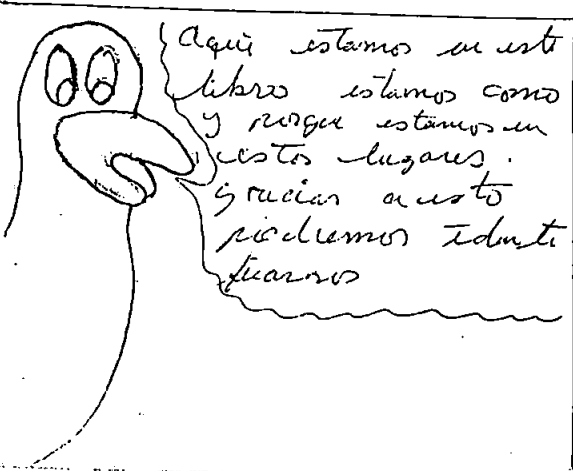 Aqui estamos en este
libro estamos como
y porque estamos en
estos lugares.
gracias a esto
podremos identi
ficarnos